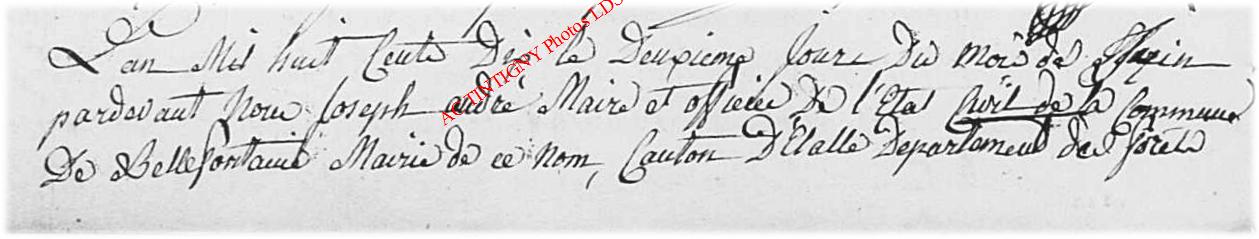 L'an Mil huit Cents Dix le Deuxieme Jour Du Mois de Juin
pardevant Nous Joseph andré Maire et officier De l'Etat Civil de la Commune
De Bellefontaine Mairie de ce Nom, Canton D'Etalle Departement des forets
ACTIVTIGNY Photos LDS